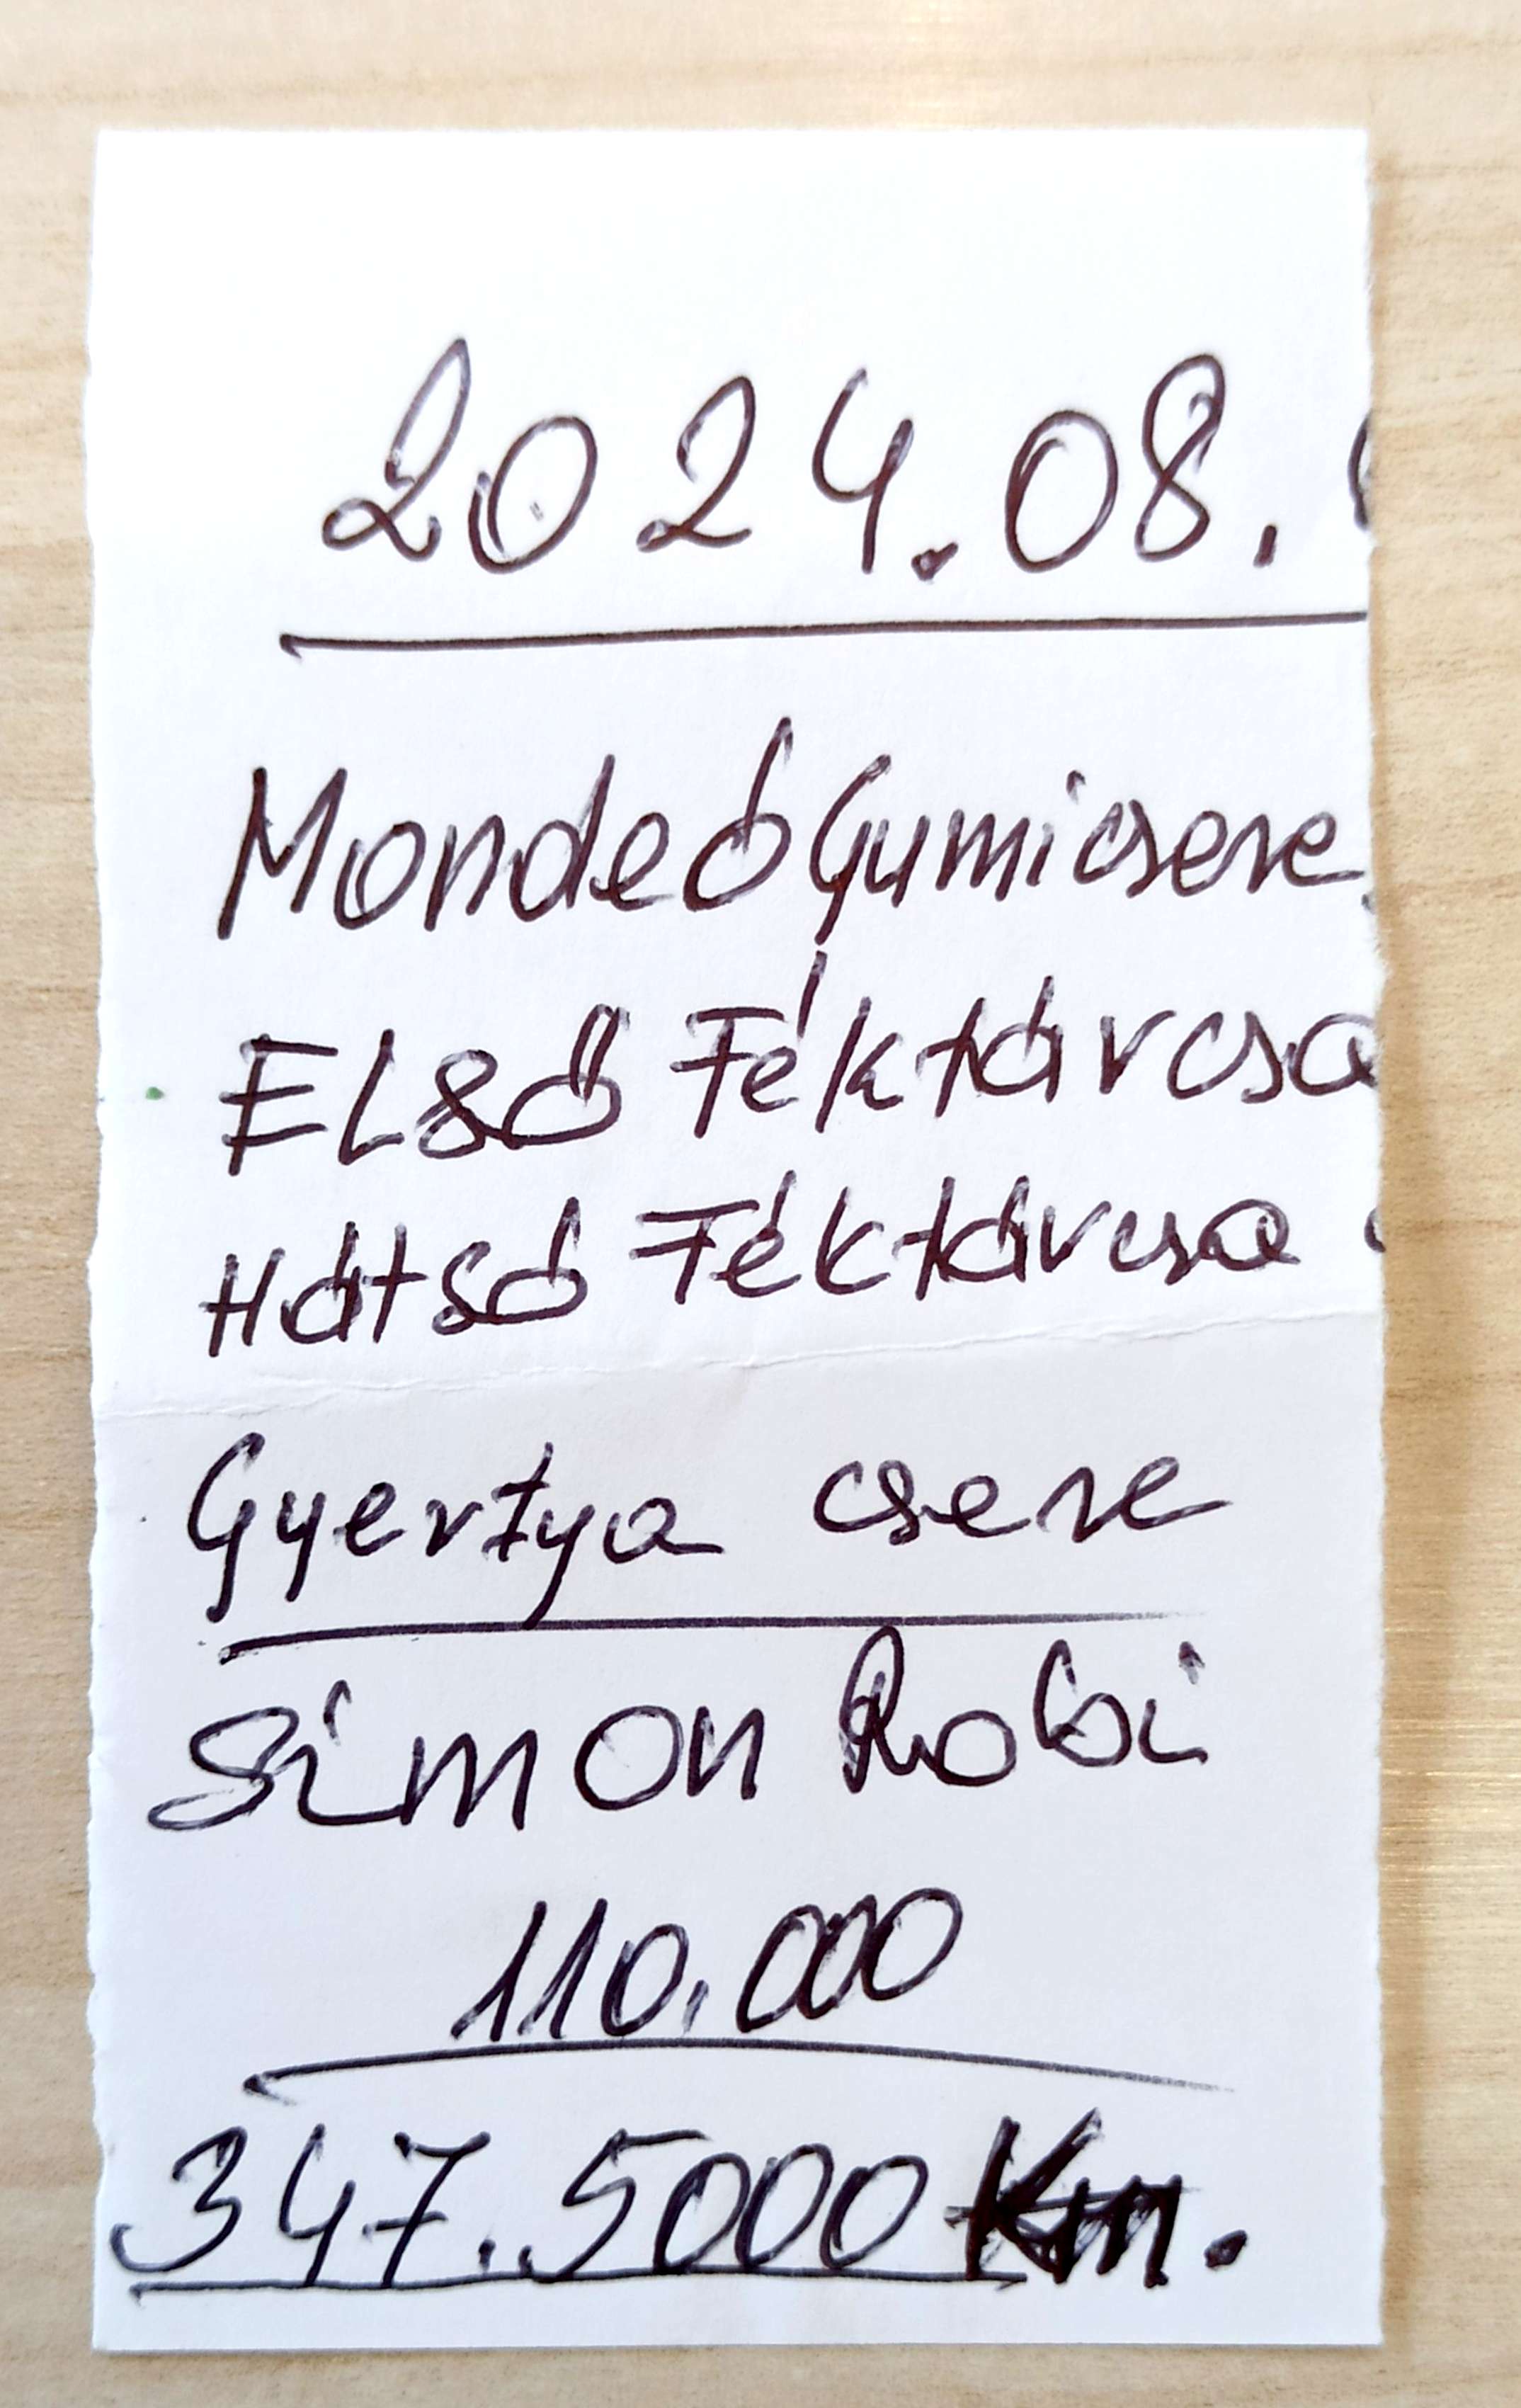 2024.08.
Mondeó Gumicsere
ELSŐ Féktárcsa
Hátsó Féktárcsa
Gyertya csere
Simon Robi
110.000
347.5000 Km.